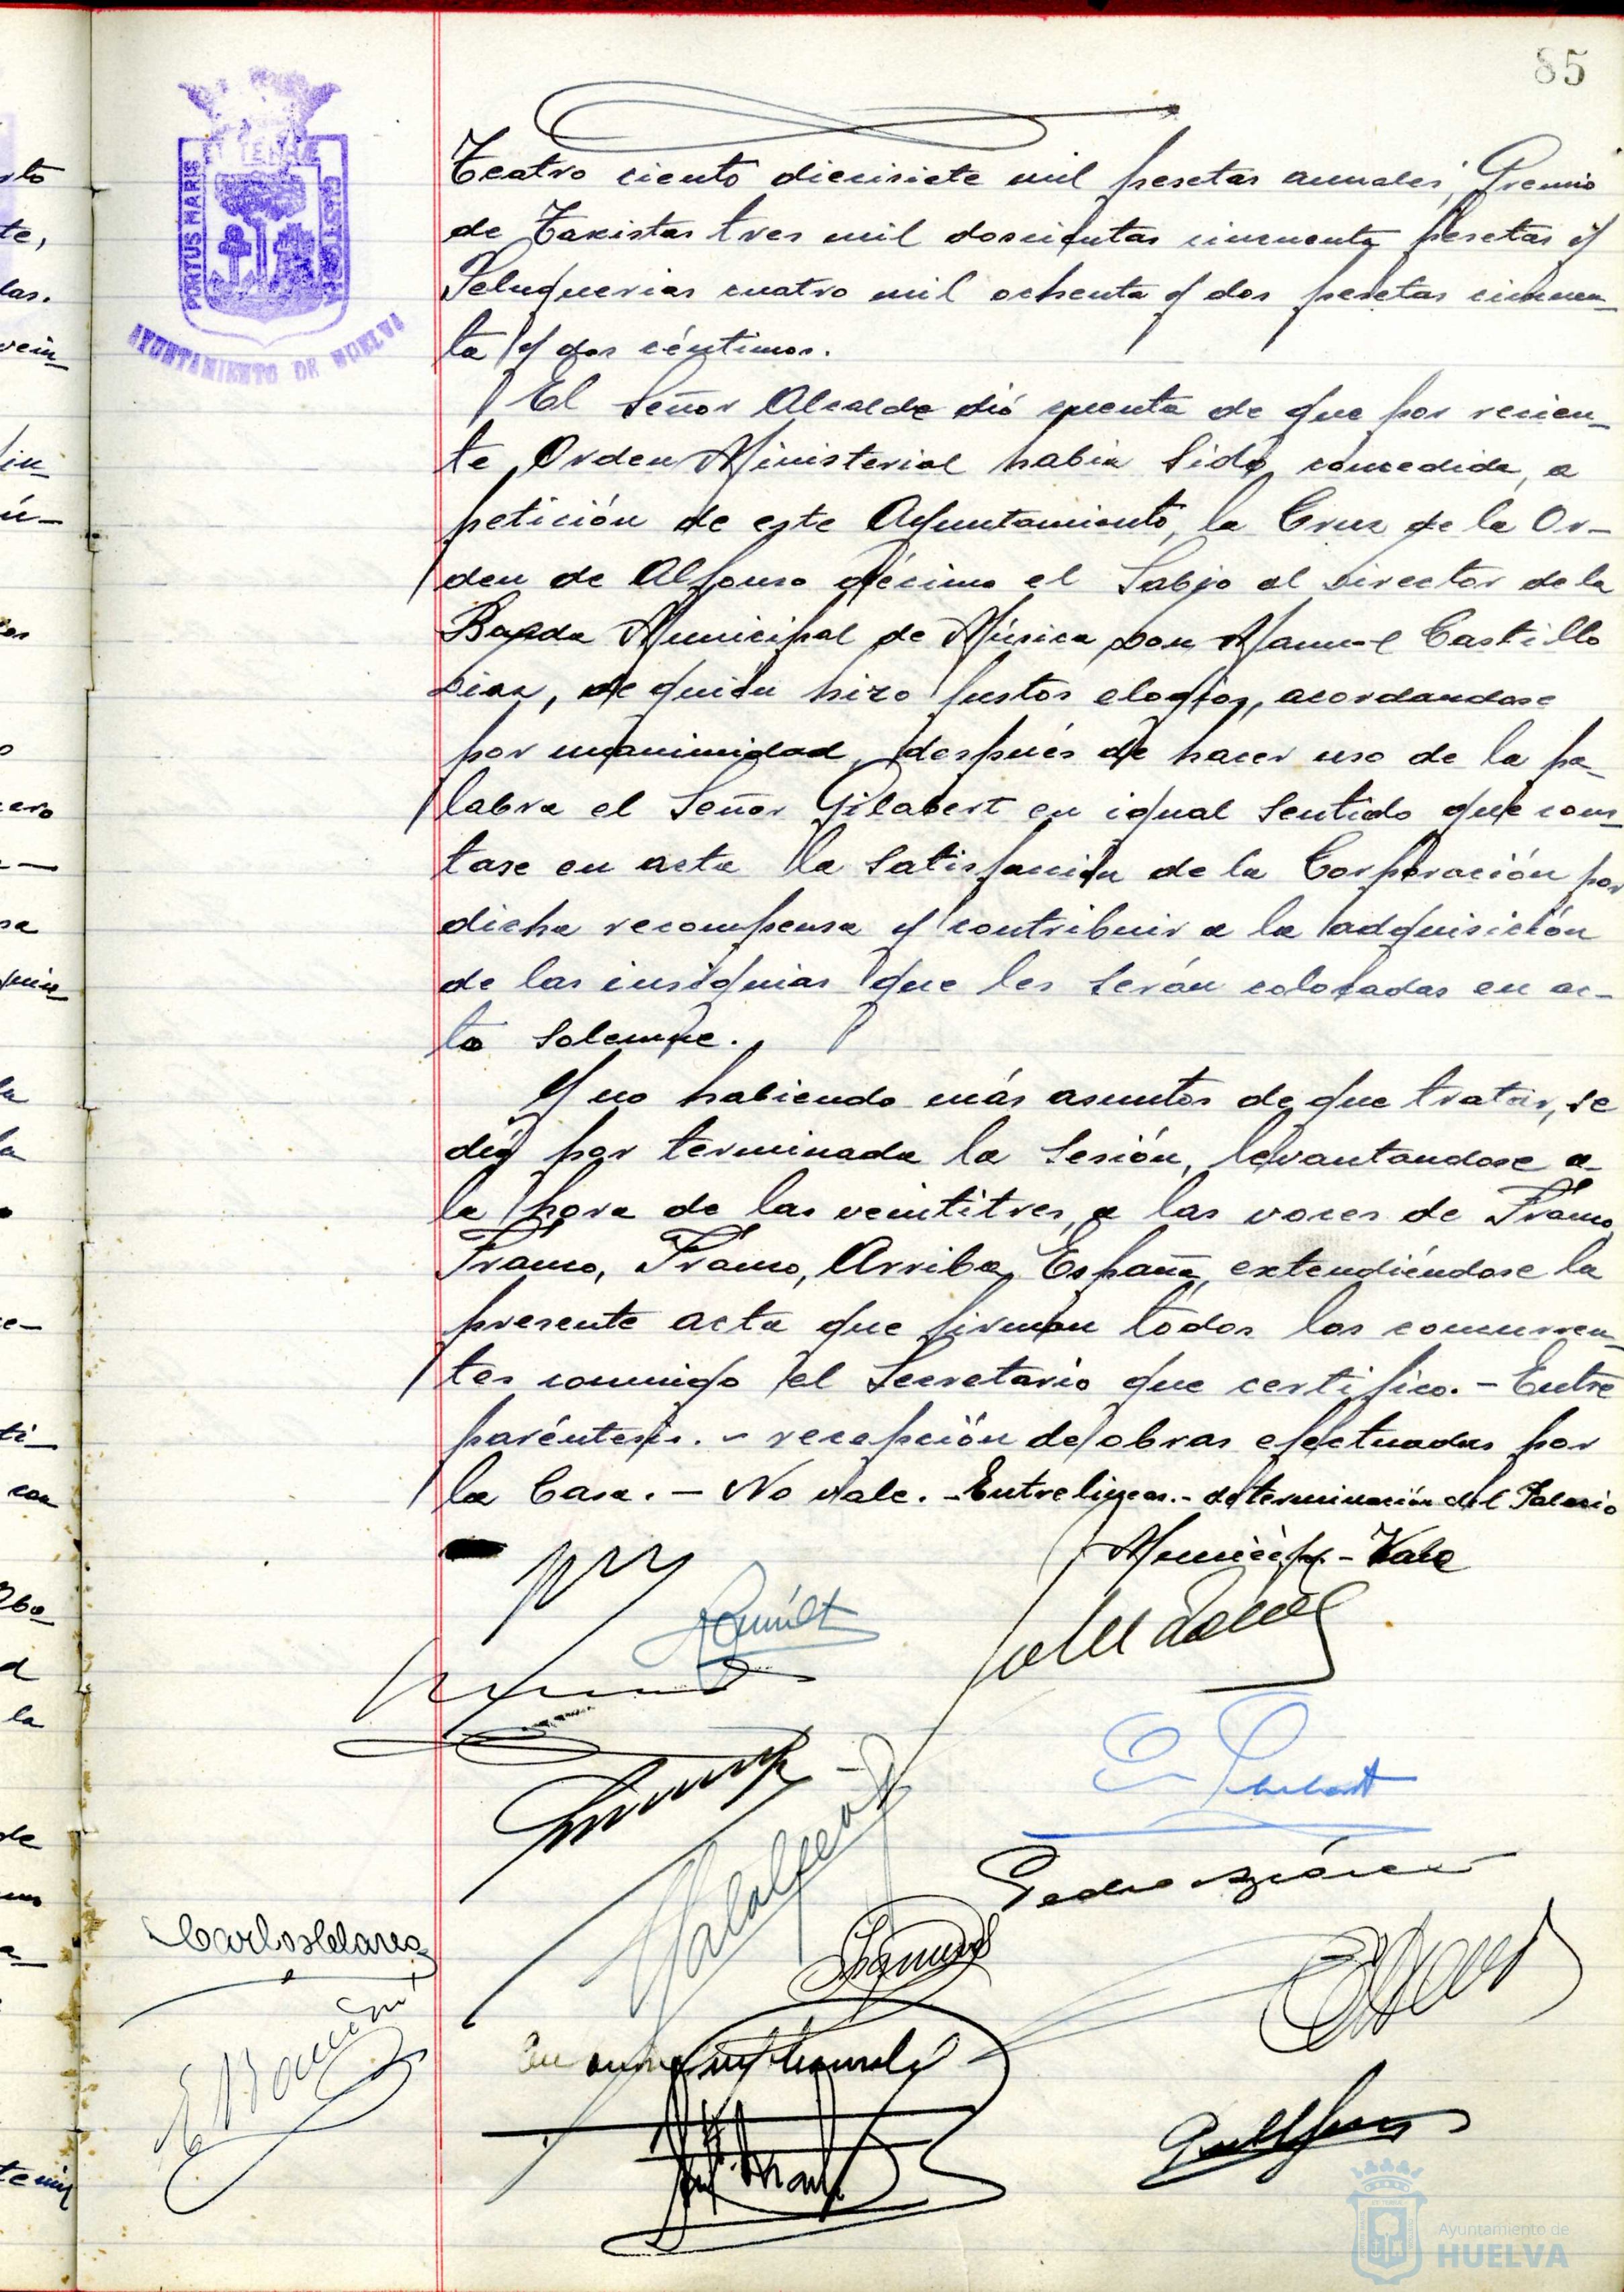 85
PORTUS MARIS
ET TERRAE
CUSTODIA
AYUNTAMIENTO DE HUELVA
Teatro ciento diecisiete mil pesetas anuales; Gremio
de Taxistas tres mil doscientas cincuenta pesetas y
Peluquerias cuatro mil ochenta y dos pesetas cincuen-
ta y dos céntimos.
El Señor Alcalde dió cuenta de que por recien-
te Orden Ministerial habia sido concedida, a
petición de este Ayuntamiento, la Cruz de la Or-
den de Alfonso décimo el Sabio al Director de la
Banda Municipal de Música Don Manuel Castillo
Diaz, de quién hizo justos elogios, acordandose
por unanimidad, después de hacer uso de la pa-
labra el Señor Gilabert en igual sentido que cons-
tase en acta la satisfacción de la Corporación por
dicha recompensa y contribuir a la adquisición
de las insignias que les serán colocadas en ac-
to solemne.
Y no habiendo más asuntos de que tratar, se
dió por terminada la sesión, levantandose a
la hora de las veintitres, a las voces de Franco,
Franco, Franco, Arriba España, extendiéndose la
presente acta que firman todos los concurren-
tes conmigo el Secretario que certifico. - Entre
paréntesis. - recepción de obras efectuadas por
la Casa. - No vale. - Entre lineas. - de terminación del Palacio
Municipal - Vale
Ayuntamiento de
HUELVA